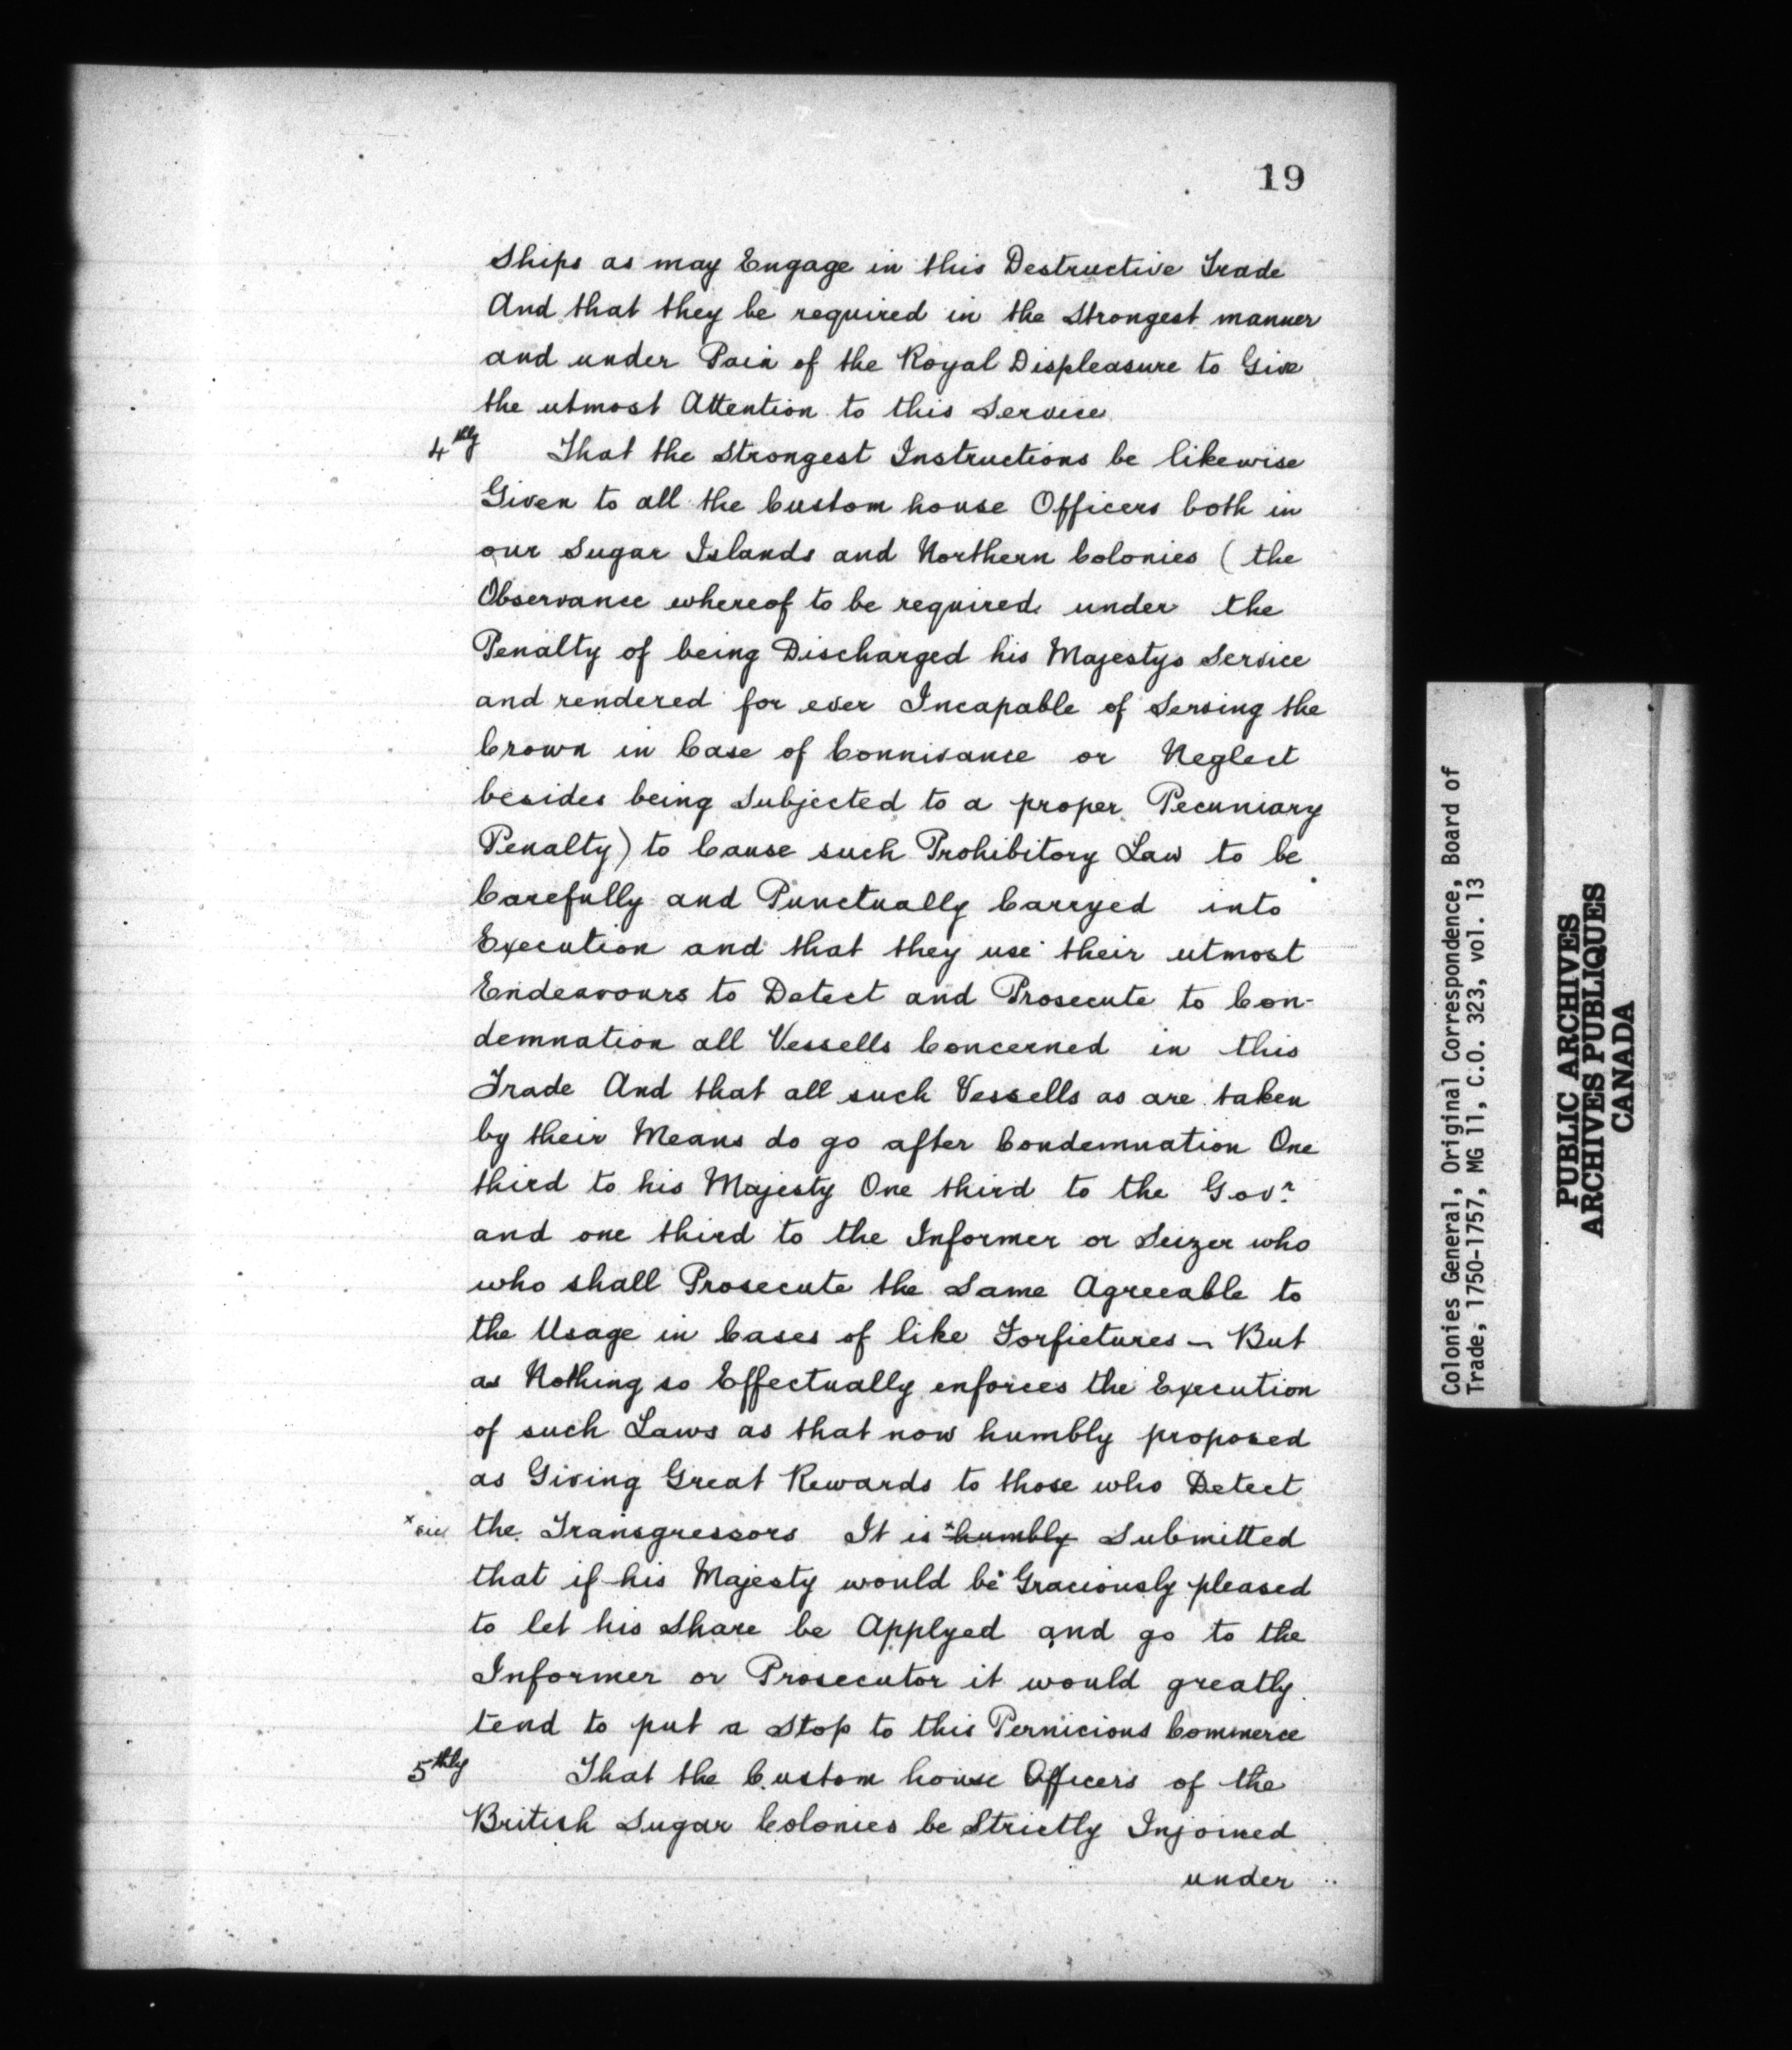 19
Ships as may Engage in this Destructive Trade
And that they be required in the Strongest manner
and under Pain of the Royal Displeasure to Give
the utmost Attention to this Service
4thly That the Strongest Instructions be likewise
Given to all the Custom house Officers both in
our Sugar Islands and Northern Colonies (the
Observance whereof to be required under the
Penalty of being Discharged his Majestys Service
and rendered for ever Incapable of Serving the
Crown in Case of Connivance or Neglect
besides being Subjected to a proper Pecuniary
Penalty) to Cause such Prohibitory Law to be
Carefully and Punctually Carryed into
Execution and that they use their utmost
Endeavours to Detect and Prosecute to Con-
demnation all Vessells Concerned in this
Trade And that all such Vessells as are taken
by their Means do go after Condemnation One
third to his Majesty One third to the Govr.
and one third to the Informer or Seizer who
who shall Prosecute the Same Agreeable to
the Usage in Cases of like Forfietures – But
as Nothing so Effectually enforces the Execution
of such Laws as that now humbly proposed
as Giving Great Rewards to those who Detect
x sic the Transgressors It is x humbly Submitted
that if his Majesty would be Graciously pleased
to let his Share be Applyed and go to the
Informer or Prosecutor it would greatly
tend to put a Stop to this Pernicious Commerce
5thly That the Custom house Officers of the
British Sugar Colonies be Strictly Injoined
under
Colonies General, Original Correspondence, Board of
Trade, 1750-1757, MG 11, C.O. 323, vol. 13
PUBLIC ARCHIVES
ARCHIVES PUBLIQUES
CANADA